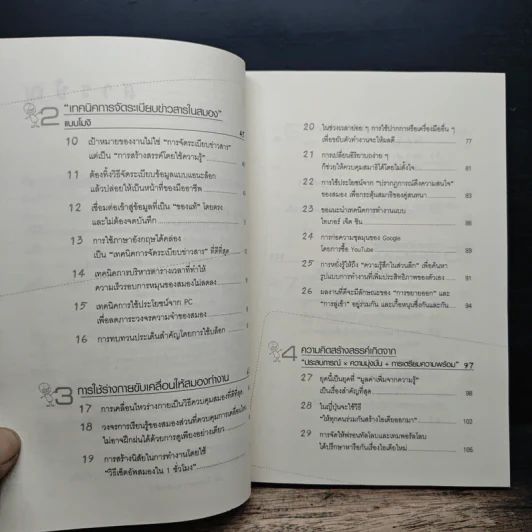 2 "เทคนิคการจัดระเบียบข่าวสารในสมอง"
แบบโมงิ
10 เป้าหมายของงานไม่ใช่ "การจัดระเบียบข่าวสาร"
แต่เป็น "การสร้างสรรค์โดยใช้ความรู้"
11 ต้องทิ้งวิธีจัดระเบียบข้อมูลแบบแอนะล็อก
แล้วปล่อยให้เป็นหน้าที่ของมืออาชีพ
12 เชื่อมต่อเข้าสู่ข้อมูลที่เป็น "ของแท้" โดยตรง
และไม่ต้องจดบันทึก
13 การใช้ภาษาอังกฤษได้คล่อง
เป็น "เทคนิคการจัดระเบียบข่าวสาร" ที่ดีที่สุด
14 เทคนิคบริหารตารางเวลาที่ทำให้
ความเร็วรอบการหมุนของสมองไม่ลดลง
15 เทคนิคการใช้ประโยชน์จาก PC
เพื่อลดภาระวงจรความจำของสมอง
16 การทบทวนประเด็นสำคัญโดยการใช้บล็อก
3 การใช้ร่างกายขับเคลื่อนให้สมองทำงาน
17 การเคลื่อนไหวร่างกายเป็นวิธีควบคุมสมองที่ดีที่สุด
18 วงจรการเรียนรู้ของสมองส่วนที่ควบคุมการเคลื่อนไหว
ไม่อาจฝึกฝนได้ด้วยการดูเพียงอย่างเดียว
19 การสร้างนิสัยในการทำงานโดยใช้
"วิธีเซ็ตอัพสมองใน 1 ชั่วโมง"
20 ในช่วงเวลาย่อย ๆ การใช้ปากกาหรือเครื่องมืออื่น ๆ
เพื่อขยับตัวทำงานจะให้ผลดี 77
21 การเปลี่ยนอิริยาบถง่าย ๆ
ก็ช่วยให้ควบคุมสมาธิได้โดยไม่ตั้งใจ 80
22 การใช้ประโยชน์จาก "ปรากฏการณ์ดึงความสนใจ"
ของสมอง เพื่อกระตุ้นสมาธิของคู่สนทนา 83
23 ขอแนะนำเทคนิคการทำงานแบบ
ไทเกอร์ เจ็ต ซิน 86
24 การก่อความชุลมุนของ Google
โดยการซื้อ YouTube 88
25 การหยั่งรู้ให้ถึง "ความรู้สึกในส่วนลึก" เพื่อค้นหา
รูปแบบการทำงานที่เพิ่มประสิทธิภาพของตัวเอง 91
26 ผลงานที่ดีจะมีลักษณะของ "การขยายออก" และ
"การลู่เข้า" อยู่ร่วมกัน และเกื้อหนุนซึ่งกันและกัน 94
4 ความคิดสร้างสรรค์เกิดจาก
"ประสบการณ์ × ความมุ่งมั่น + การเตรียมความพร้อม" 97
27 ยุคนี้เป็นยุคที่ "มูลค่าเพิ่มจากความรู้"
เป็นเรื่องสำคัญที่สุด 98
28 ในญี่ปุ่นจะใช้วิธี
"ให้ทุกคนร่วมกันสร้างไอเดียออกมา" 102
29 การจัดให้ฟรอนทัลโลบและเทมพอรัลโลบ
ได้ปรึกษาหารือกันเรื่องไอเดียใหม่ 106